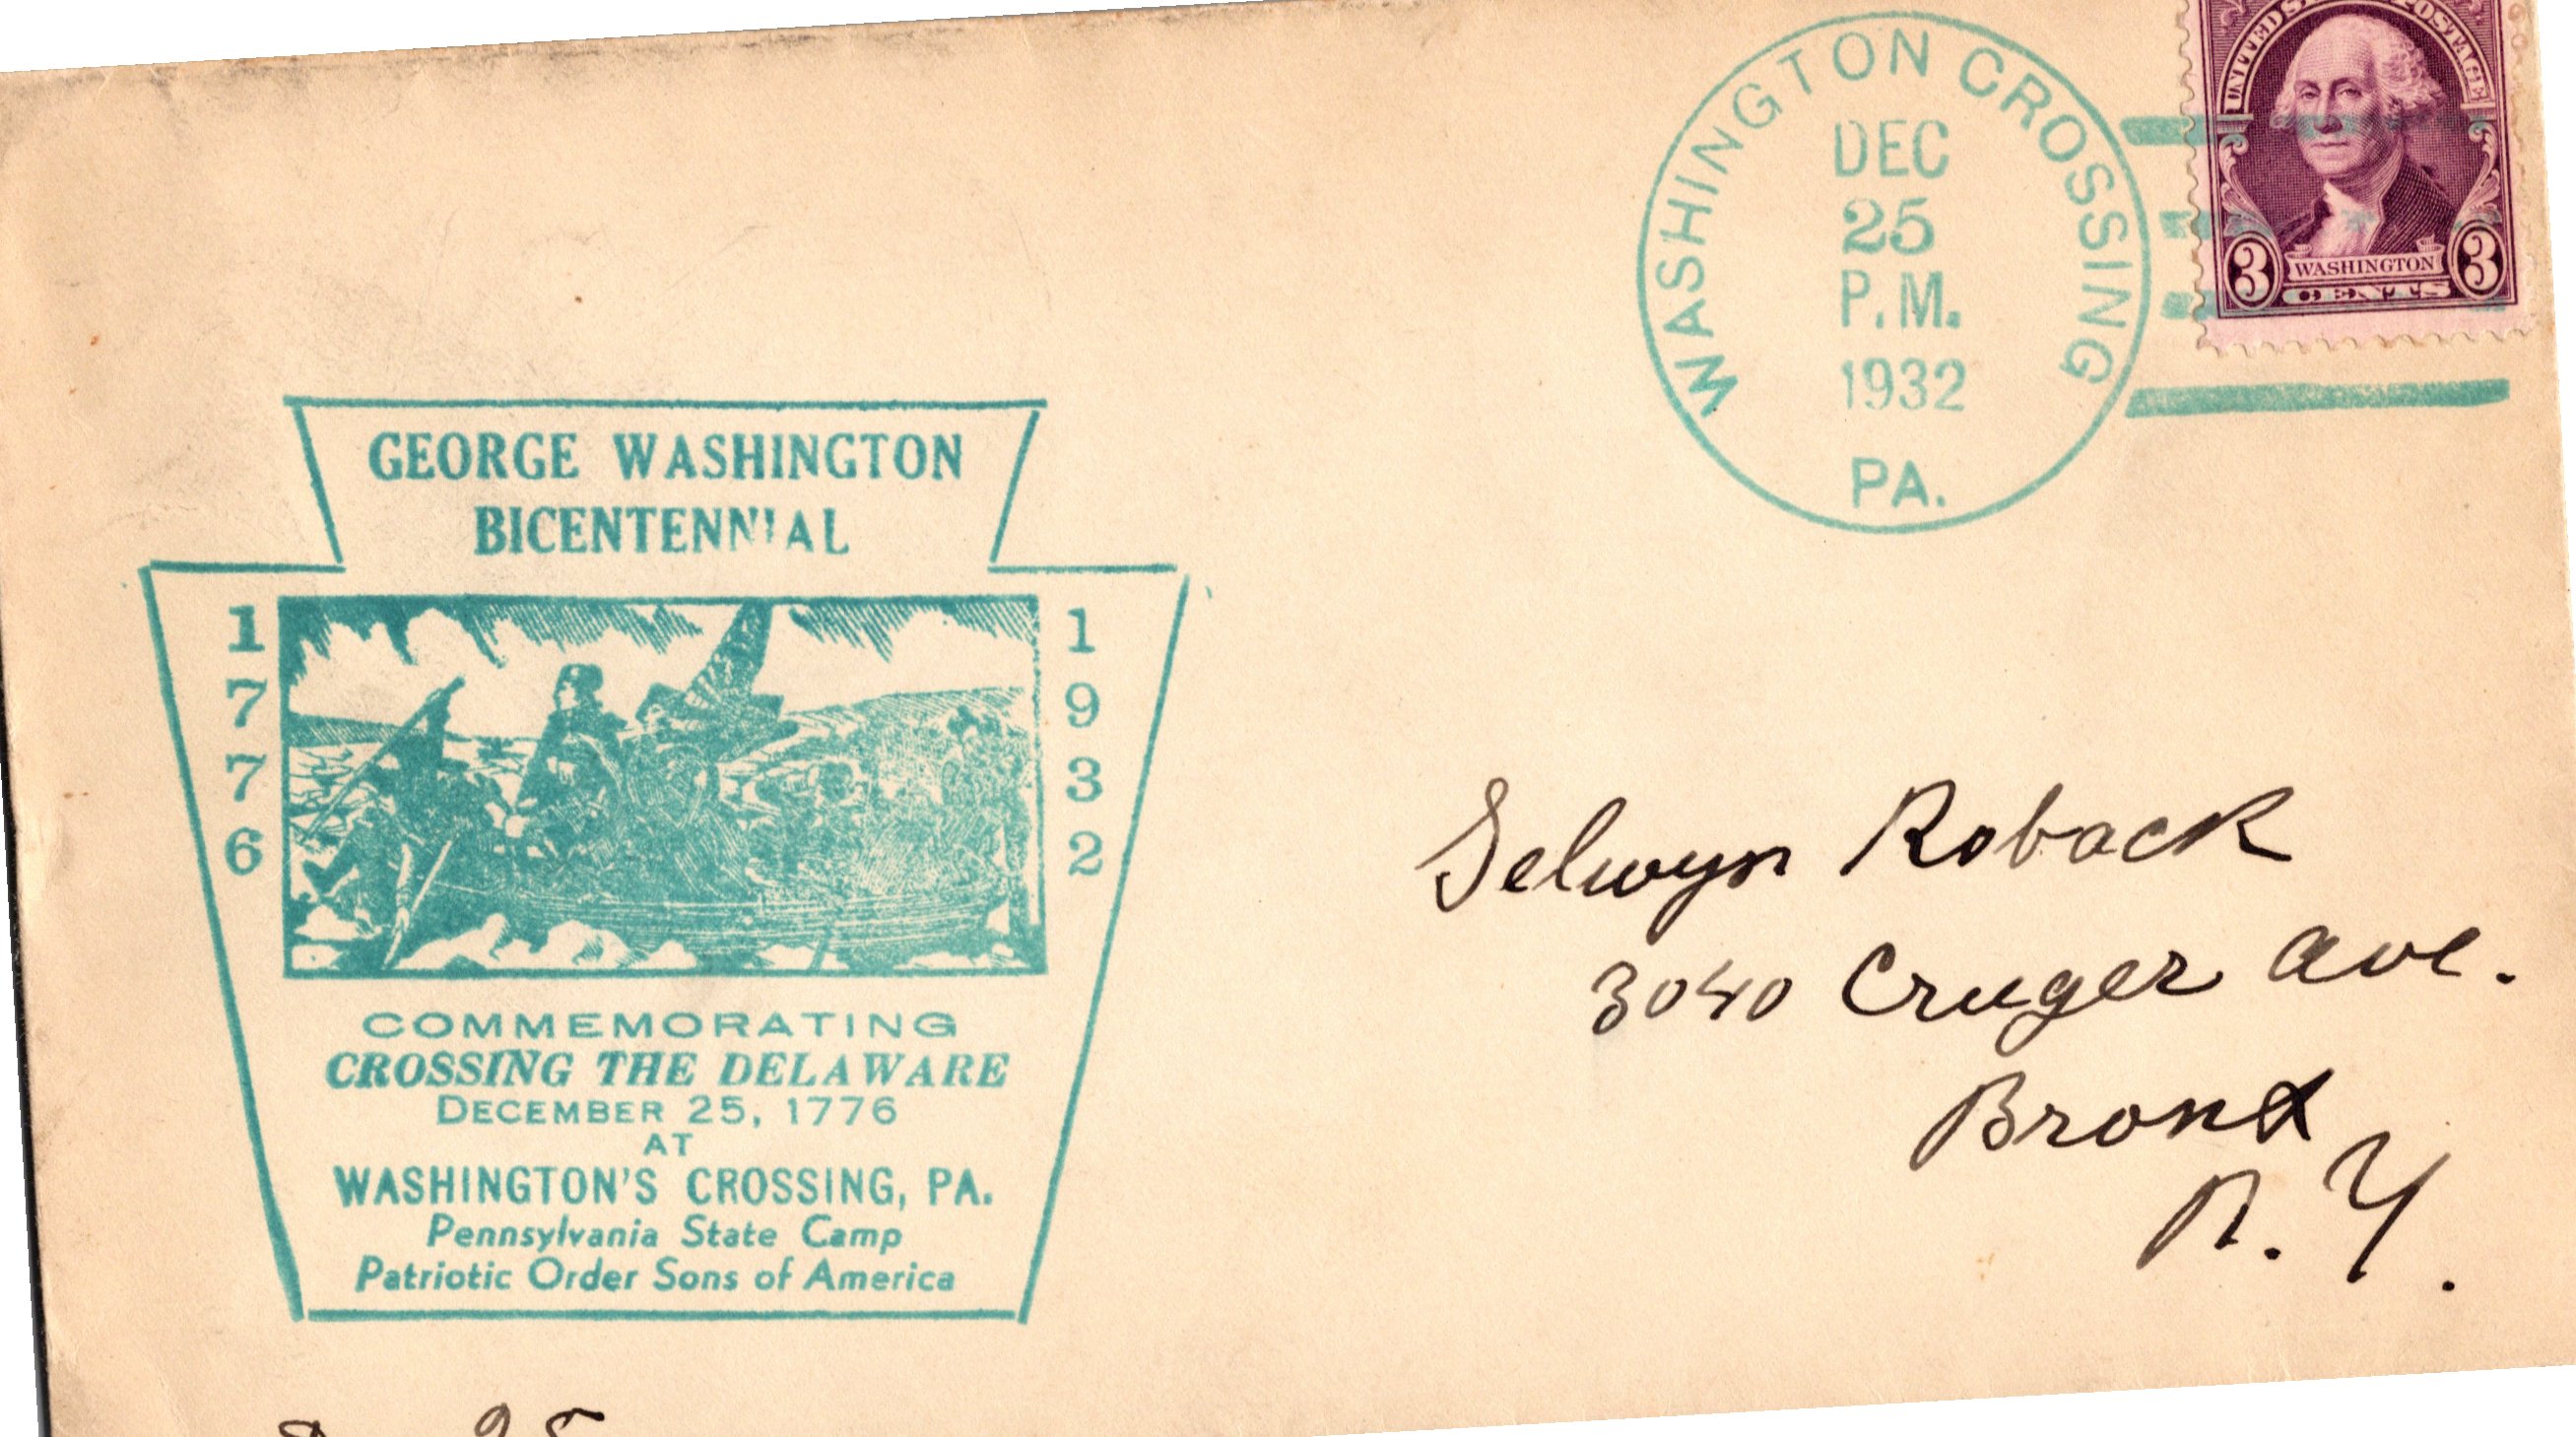 UNITED STATES POSTAGE
3 WASHINGTON 3
CENTS
WASHINGTON CROSSING
DEC
25
P.M.
1932
PA.
GEORGE WASHINGTON
BICENTENNIAL
1776
1932
COMMEMORATING
CROSSING THE DELAWARE
DECEMBER 25, 1776
AT
WASHINGTON'S CROSSING, PA.
Pennsylvania State Camp
Patriotic Order Sons of America
Selwyn Roback
3040 Cruger Ave.
Bronx
N. Y.